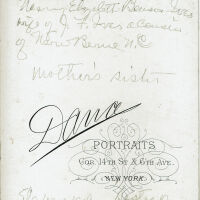 Nancy Elizabeth Benson Ives
wife of J. F. Ives a cousin
of New Berne N.C
Mother's sister
Dana
PORTRAITS
COR. 14TH ST. & 6TH AVE.
NEW YORK.